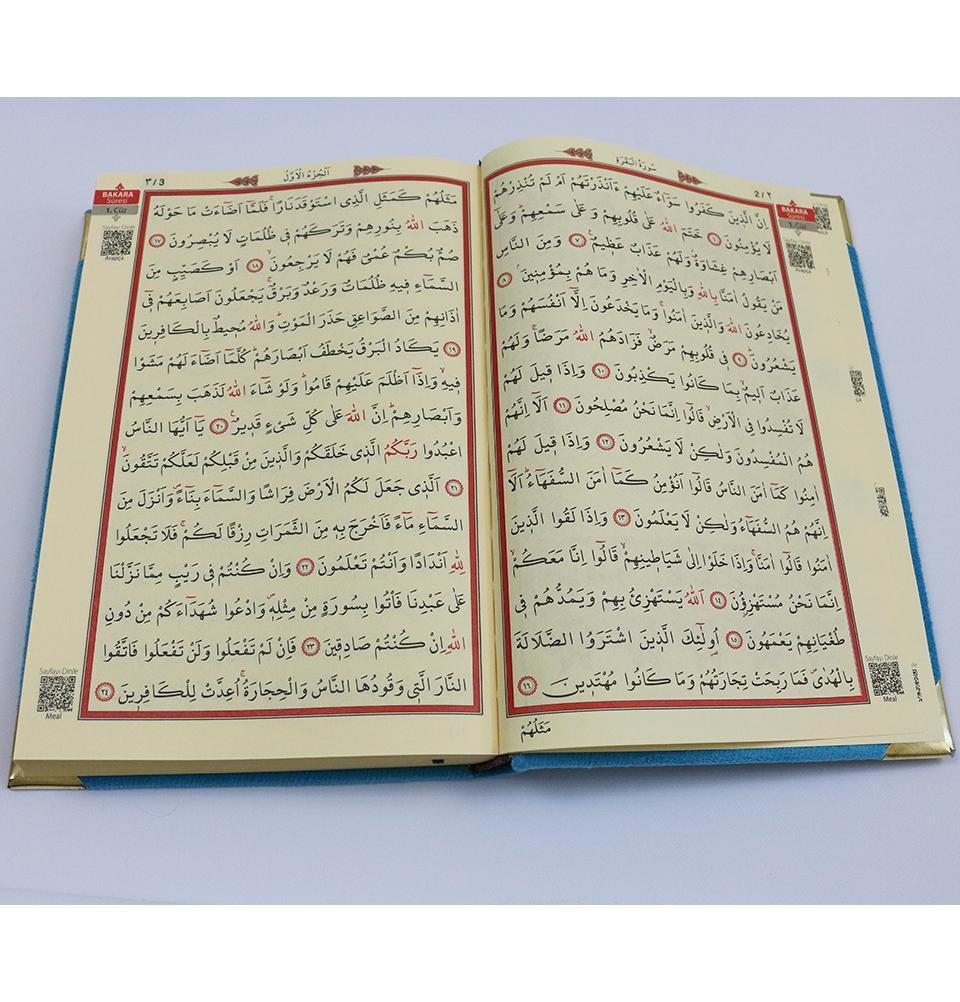 سُورَةُ الْبَقَرَةِ
2 / ٢
BAKARA
Sûresi
1. Cüz
Arapça
اِنَّ الَّذ۪ينَ كَفَرُوا سَوَٓاءٌ عَلَيْهِمْ ءَاَنْذَرْتَهُمْ اَمْ لَمْ تُنْذِرْهُمْ
لَا يُؤْمِنُونَ ﴿٦﴾ خَتَمَ اللّٰهُ عَلٰى قُلُوبِهِمْ وَعَلٰى سَمْعِهِمْۜ وَعَلٰٓى
اَبْصَارِهِمْ غِشَاوَةٌۘ وَلَهُمْ عَذَابٌ عَظ۪يمٌ۟ ﴿٧﴾ وَمِنَ النَّاسِ
مَنْ يَقُولُ اٰمَنَّا بِاللّٰهِ وَبِالْيَوْمِ الْاٰخِرِ وَمَا هُمْ بِمُؤْمِن۪ينَۢ ﴿٨﴾
يُخَادِعُونَ اللّٰهَ وَالَّذ۪ينَ اٰمَنُواۚ وَمَا يَخْدَعُونَ اِلَّٓا اَنْفُسَهُمْ وَمَا
يَشْعُرُونَۜ ﴿٩﴾ ف۪ي قُلُوبِهِمْ مَرَضٌۙ فَزَادَهُمُ اللّٰهُ مَرَضًاۚ وَلَهُمْ
عَذَابٌ اَل۪يمٌۙ بِمَا كَانُوا يَكْذِبُونَ ﴿١٠﴾ وَاِذَا ق۪يلَ لَهُمْ
لَا تُفْسِدُوا فِي الْاَرْضِۙ قَالُٓوا اِنَّمَا نَحْنُ مُصْلِحُونَ ﴿١١﴾ اَلَٓا اِنَّهُمْ
هُمُ الْمُفْسِدُونَ وَلٰكِنْ لَا يَشْعُرُونَ ﴿١٢﴾ وَاِذَا ق۪يلَ لَهُمْ
اٰمِنُوا كَمَٓا اٰمَنَ النَّاسُ قَالُٓوا اَنُؤْمِنُ كَمَٓا اٰمَنَ السُّفَهَٓاءُۜ اَلَٓا
اِنَّهُمْ هُمُ السُّفَهَٓاءُ وَلٰكِنْ لَا يَعْلَمُونَ ﴿١٣﴾ وَاِذَا لَقُوا الَّذ۪ينَ
اٰمَنُوا قَالُٓوا اٰمَنَّاۚ وَاِذَا خَلَوْا اِلٰى شَيَاط۪ينِهِمْۙ قَالُٓوا اِنَّا مَعَكُمْۙ
اِنَّمَا نَحْنُ مُسْتَهْزِؤُ۫نَ ﴿١٤﴾ اَللّٰهُ يَسْتَهْزِئُ بِهِمْ وَيَمُدُّهُمْ ف۪ي
طُغْيَانِهِمْ يَعْمَهُونَ ﴿١٥﴾ اُو۬لٰٓئِكَ الَّذ۪ينَ اشْتَرَوُا الضَّلَالَةَ
بِالْهُدٰىۖ فَمَا رَبِحَتْ تِجَارَتُهُمْ وَمَا كَانُوا مُهْتَد۪ينَ ﴿١٦﴾
مَثَلُهُمْ
Sayfayı Dinle
Meal
٣ / 3
اَلْجُزْءُ الْاَوَّلُ
BAKARA
Sûresi
1. Cüz
Sayfayı Dinle
Arapça
مَثَلُهُمْ كَمَثَلِ الَّذِي اسْتَوْقَدَ نَارًاۚ فَلَمَّٓا اَضَٓاءَتْ مَا حَوْلَهُ
ذَهَبَ اللّٰهُ بِنُورِهِمْ وَتَرَكَهُمْ ف۪ي ظُلُمَاتٍ لَا يُبْصِرُونَ ﴿١٧﴾
صُمٌّ بُكْمٌ عُمْيٌ فَهُمْ لَا يَرْجِعُونَۙ ﴿١٨﴾ اَوْ كَصَيِّبٍ مِنَ
السَّمَٓاءِ ف۪يهِ ظُلُمَاتٌ وَرَعْدٌ وَبَرْقٌۚ يَجْعَلُونَ اَصَابِعَهُمْ ف۪ٓي
اٰذَانِهِمْ مِنَ الصَّوَاعِقِ حَذَرَ الْمَوْتِۜ وَاللّٰهُ مُح۪يطٌ بِالْكَافِر۪ينَ
﴿١٩﴾ يَكَادُ الْبَرْقُ يَخْطَفُ اَبْصَارَهُمْۜ كُلَّمَٓا اَضَٓاءَ لَهُمْ مَشَوْا
ف۪يهِۙ وَاِذَٓا اَظْلَمَ عَلَيْهِمْ قَامُواۜ وَلَوْ شَٓاءَ اللّٰهُ لَذَهَبَ بِسَمْعِهِمْ
وَاَبْصَارِهِمْۜ اِنَّ اللّٰهَ عَلٰى كُلِّ شَيْءٍ قَد۪يرٌ۟ ﴿٢٠﴾ يَٓا اَيُّهَا النَّاسُ
اعْبُدُوا رَبَّكُمُ الَّذ۪ي خَلَقَكُمْ وَالَّذ۪ينَ مِنْ قَبْلِكُمْ لَعَلَّكُمْ تَتَّقُونَۙ
﴿٢١﴾ اَلَّذ۪ي جَعَلَ لَكُمُ الْاَرْضَ فِرَاشًا وَالسَّمَٓاءَ بِنَٓاءًۖ وَاَنْزَلَ مِنَ
السَّمَٓاءِ مَٓاءً فَاَخْرَجَ بِه۪ مِنَ الثَّمَرَاتِ رِزْقًا لَكُمْۚ فَلَا تَجْعَلُوا
لِلّٰهِ اَنْدَادًا وَاَنْتُمْ تَعْلَمُونَ ﴿٢٢﴾ وَاِنْ كُنْتُمْ ف۪ي رَيْبٍ مِمَّا نَزَّلْنَا
عَلٰى عَبْدِنَا فَأْتُوا بِسُورَةٍ مِنْ مِثْلِه۪ۖ وَادْعُوا شُهَدَٓاءَكُمْ مِنْ دُونِ
اللّٰهِ اِنْ كُنْتُمْ صَادِق۪ينَ ﴿٢٣﴾ فَاِنْ لَمْ تَفْعَلُوا وَلَنْ تَفْعَلُوا فَاتَّقُوا
النَّارَ الَّت۪ي وَقُودُهَا النَّاسُ وَالْحِجَارَةُۚ اُعِدَّتْ لِلْكَافِر۪ينَ ﴿٢٤﴾
Sayfayı Dinle
Meal